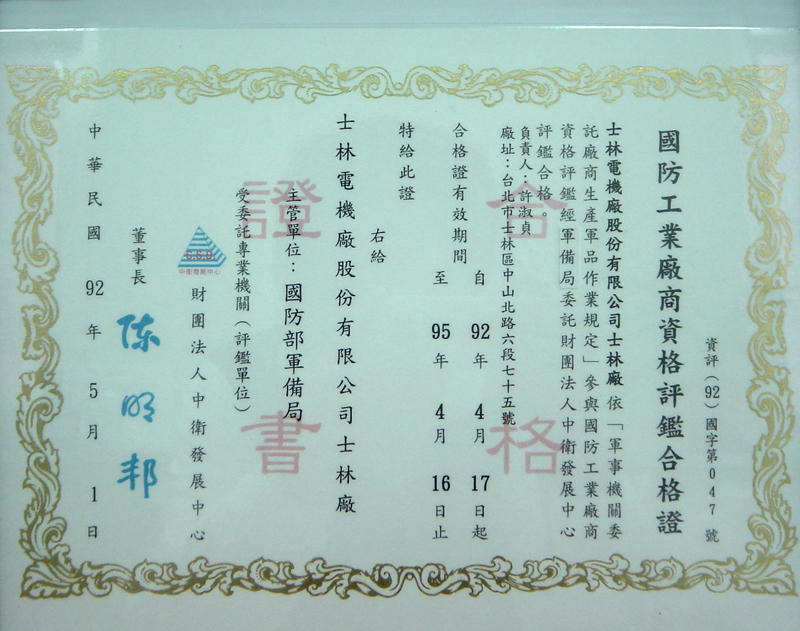 資評（92）國字第047號
國防工業廠商資格評鑑合格證
士林電機廠股份有限公司士林廠 依「軍事機關委
託廠商生產軍品作業規定」參與國防工業廠商
資格評鑑經軍備局委託財團法人中衛發展中心
評鑑合格。
負責人：許淑貞
廠址：台北市士林區中山北路六段七十五號
合格證有效期間 自 92年 4月 17日起
至 95年 4月 16日止
特給此證
右給
士林電機廠股份有限公司士林廠
主管單位：國防部軍備局
受委託專業機關（評鑑單位）
C.S.D.
中衛發展中心
財團法人中衛發展中心
董事長 陳明邦
中華民國 92年 5月 1日
合格
證書